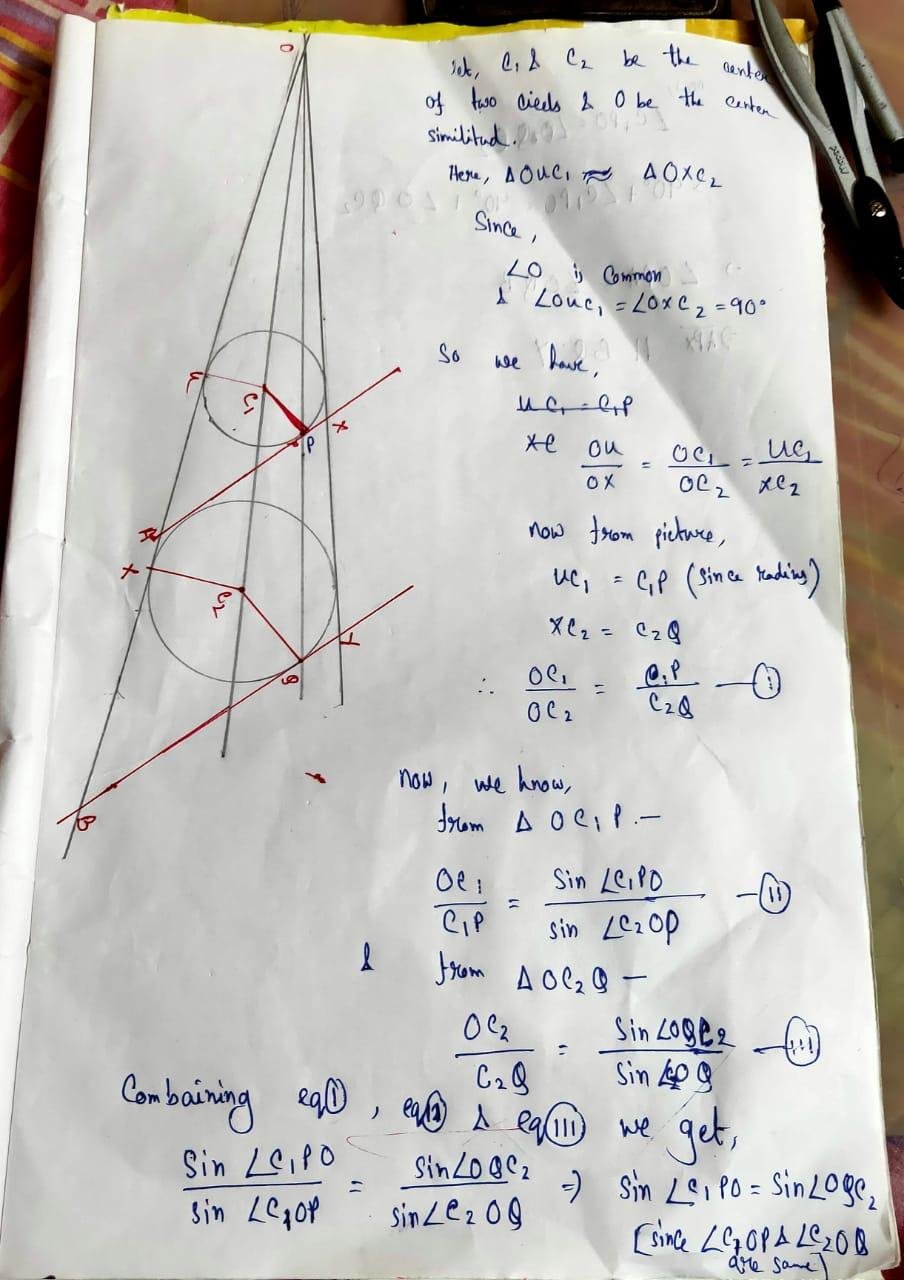 Let, C₁ & C₂ be the center
of two cicels & O be the center
similitud.
Here, ΔOUC₁ ≈ ΔOXC₂
Since,
∠O is Common
& ∠OUC₁ = ∠OXC₂ = 90°
So we have,
UC₁ = C₁P
XC OU/OX = OC₁/OC₂ = UC₁/XC₂
now from picture,
UC₁ = C₁P (Since radius)
XC₂ = C₂Q
∴ OC₁/OC₂ = C₁P/C₂Q —(I)
now, we know,
from Δ OC₁P.—
OC₁/C₁P = Sin ∠C₁PO/sin ∠C₂OP —(II)
& from Δ OC₂Q —
OC₂/C₂Q = Sin ∠OQC₂/Sin ∠C₂OQ —(III)
Combaining eq(I), eq(II) & eq(III) we get,
Sin ∠C₁PO/sin ∠C₁OP = Sin∠OQC₂/sin∠C₂OQ ⇒ Sin ∠C₁PO = Sin∠OQC₂
[Since ∠C₁OP & ∠C₂OQ
are same]
O
U
C₁
P
X
A
X
C₂
Y
Q
B